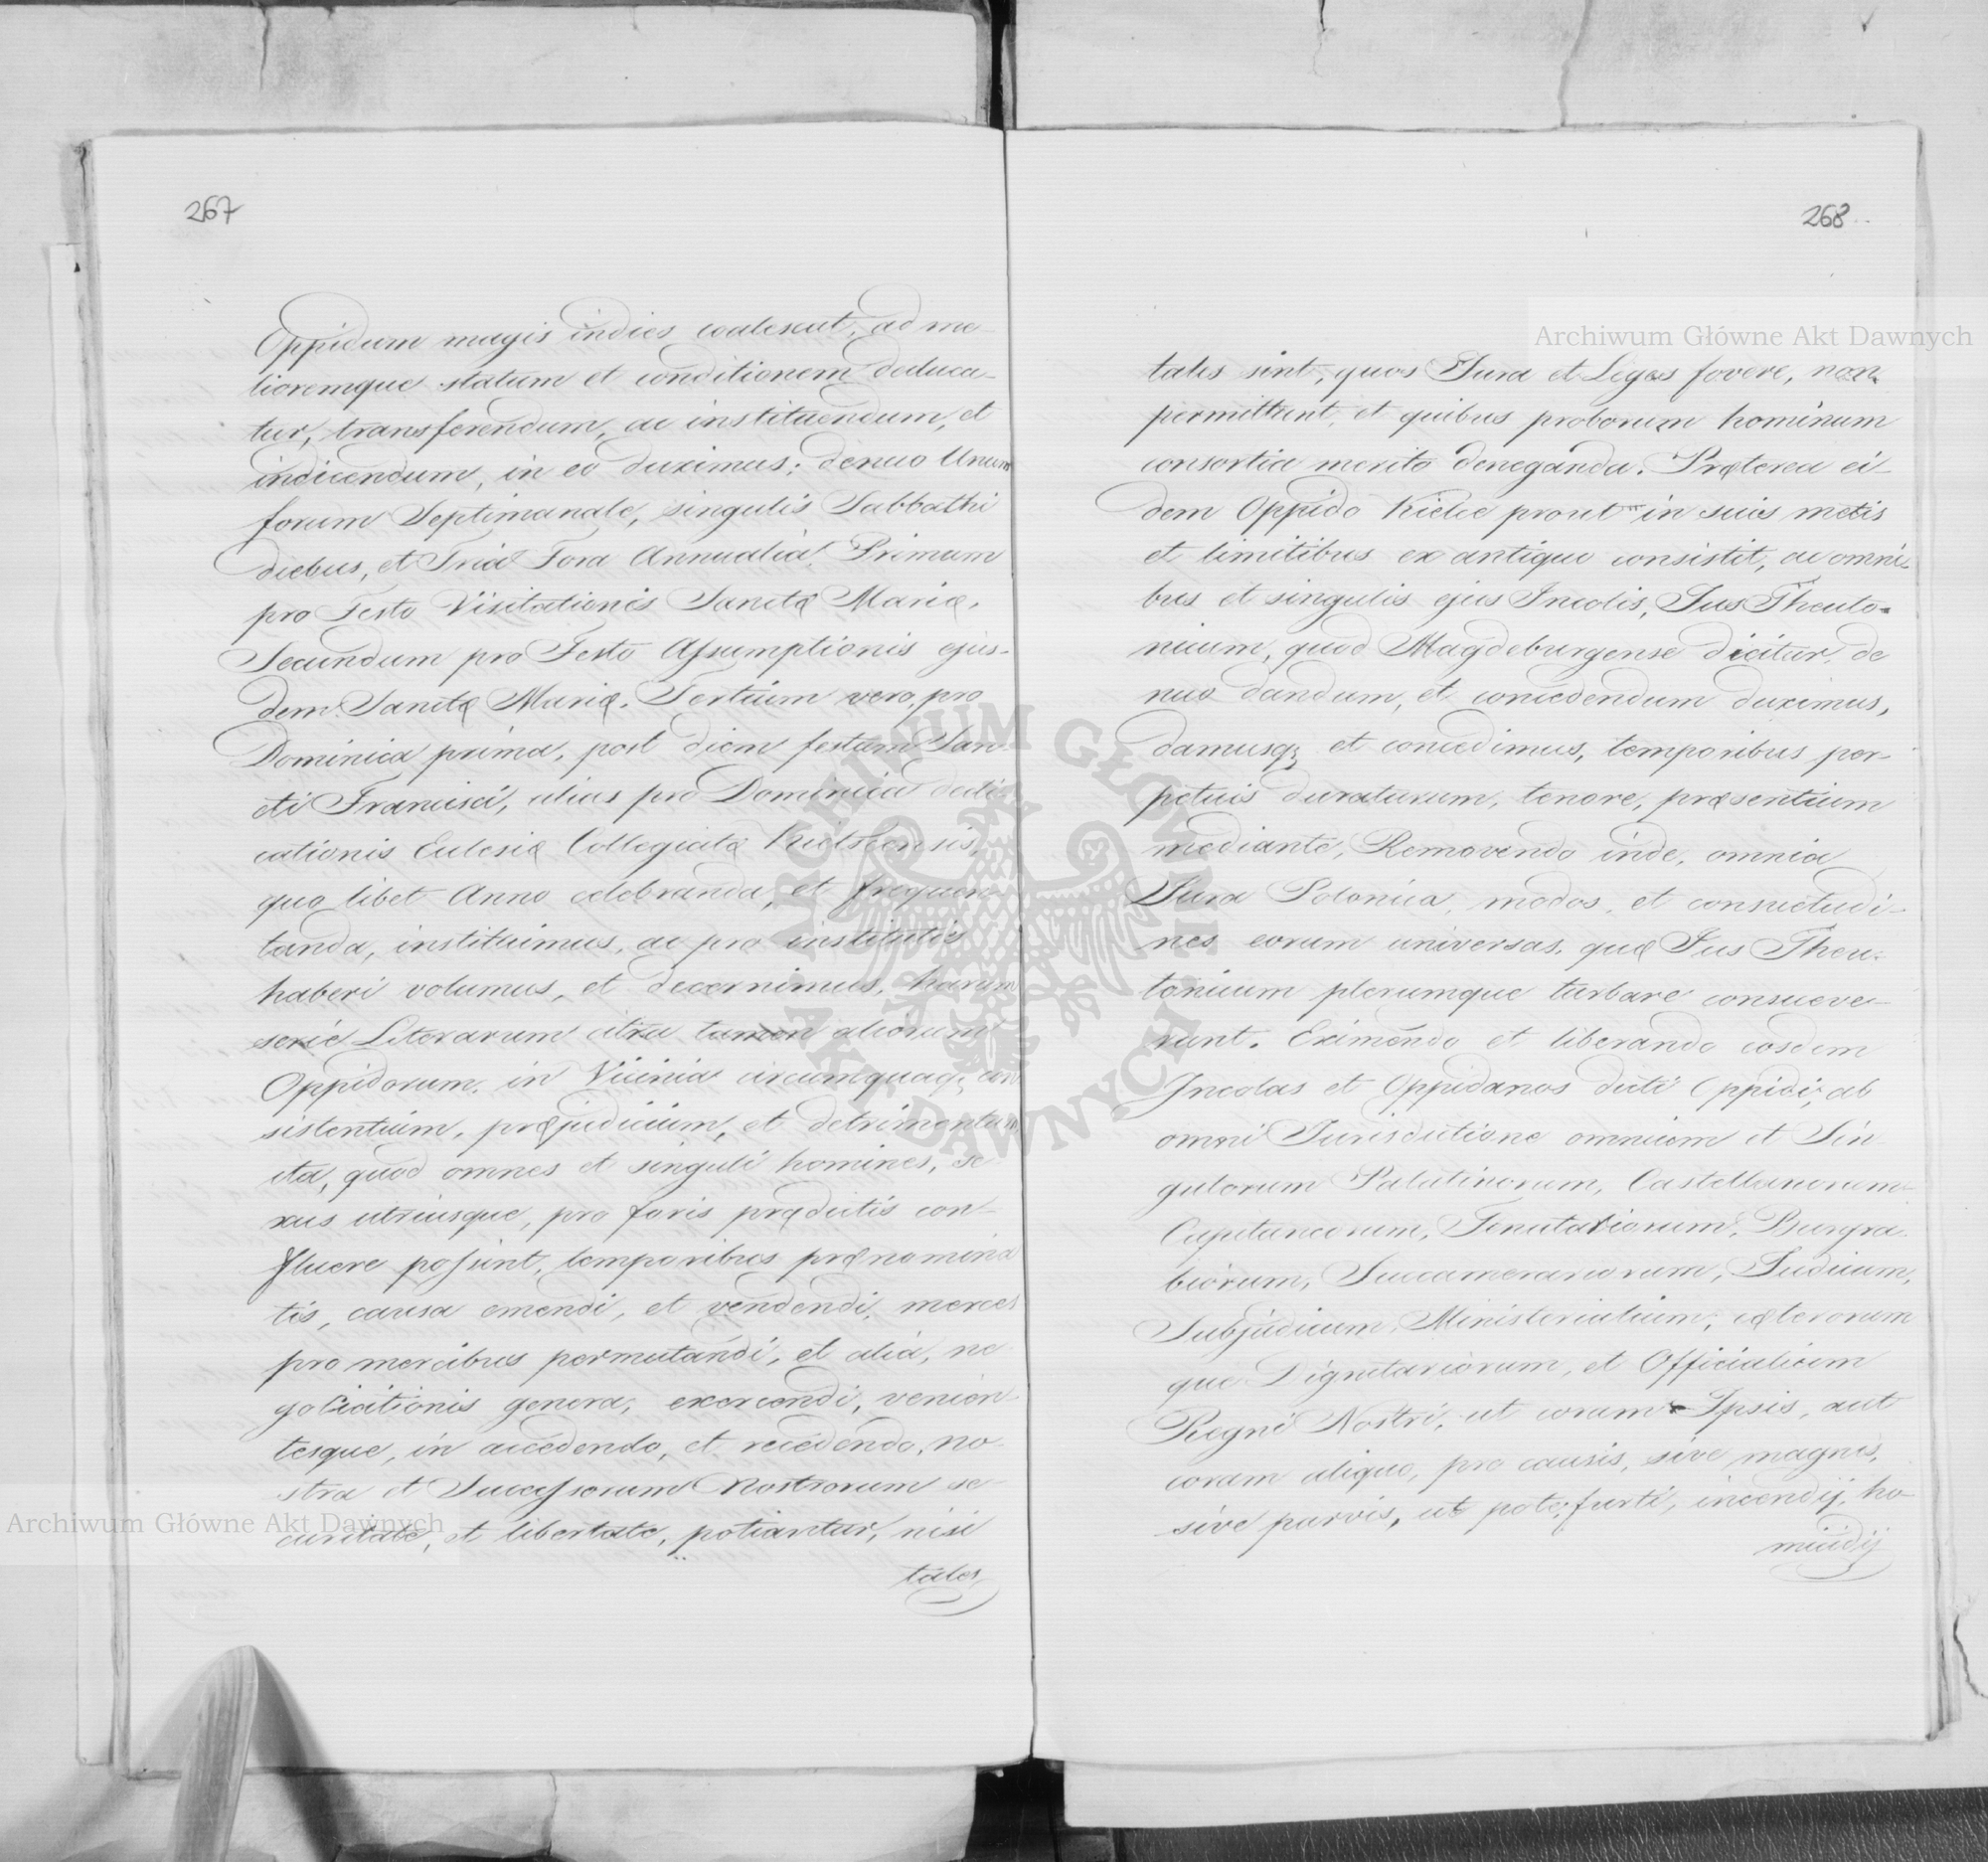 267
Oppidum magis indies coalescat, ad me-
lioremque statum et conditionem deduca-
tur, transferendum, ac instituendum, et
indicendum, in eo duximus; denuo Unum
forum Septimanale, singulis Sabbathi
diebus, et Tria Fora Annualia, Primum
pro Festo Visitationis Sanctę Marię,
Secundum pro Festo Assumptionis ejus-
dem Sanctę Marię. Tertium vero, pro
Dominica prima, post diem festum San-
cti Francisci, alias pro Dominica dedi-
cationis Eclesię Collegiatę Kielcensis,
quo libet Anno celebranda, et frequen-
tanda, instituimus, ac pro institutis
haberi volumus, et decernimus, harum
serie Literarum citra tamen aliorum
Oppidorum, in Vicinia circumquaq; con
sistentium, pręjudicium, et detrimentum
ita, quod omnes et singuli homines, se-
xus utriusque, pro foris prędictis con-
fluere possint, temporibus prænomina
tis, causa emendi, et vendendi, merces
pro mercibus permutandi, et alia, ne-
gociationis genera, exercendi, venien-
tesque, in accedendo, et recedendo, no-
stra et Successorum Nostrorum se-
curitate, et libertate, potiantur, nisi
tales
268
tales sint, quos Jura et Leges fovere, non
permittunt, et quibus proborum hominum
consortia merito deneganda. Pręterea ei-
dem Oppido Kielce prout in suis metis
et limitibus ex antiquo consistit, ac omni-
bus et singulis ejus Incolis, Jus Theuto-
nicum, quod Magdeburgense dicitur, de
nuo dandum, et concedendum duximus,
damusq; et concedimus, temporibus per-
petuis duraturum, tenore, præsentium
mediante, Removendo inde, omnia
Jura Polonica, modos, et consuetudi-
nes eorum universas, quę Jus Theu-
tonicum plerumque turbare consueve-
runt. Eximendo et liberando eosdem
Incolas et Oppidanos dicti Oppidi, ab
omni Jurisdictione omnium et Sin-
gulorum Palatinorum, Castellanorum
Capitaneorum, Tenutariorum, Burgra-
biorum, Succamerariorum, Judicum,
Subjudicum, Ministerialium, cęterorum
que Dignitariorum, et Officialium
Regni Nostri, ut coram Ipsis, aut
coram aliquo, pro causis, sive magnis,
sive parvis, ut pote; furti, incendij, ho-
micidij
Archiwum Główne Akt Dawnych
Archiwum Główne Akt Dawnych
ARCHIWUM GŁÓWNE AKT DAWNYCH